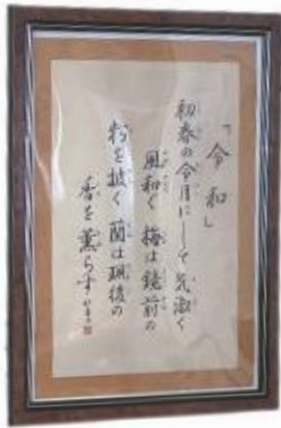 「令和」
初春の令月にして気淑く
風和ぐ 梅は鏡前の
粉を披く 蘭は珮後の
香を薫らす